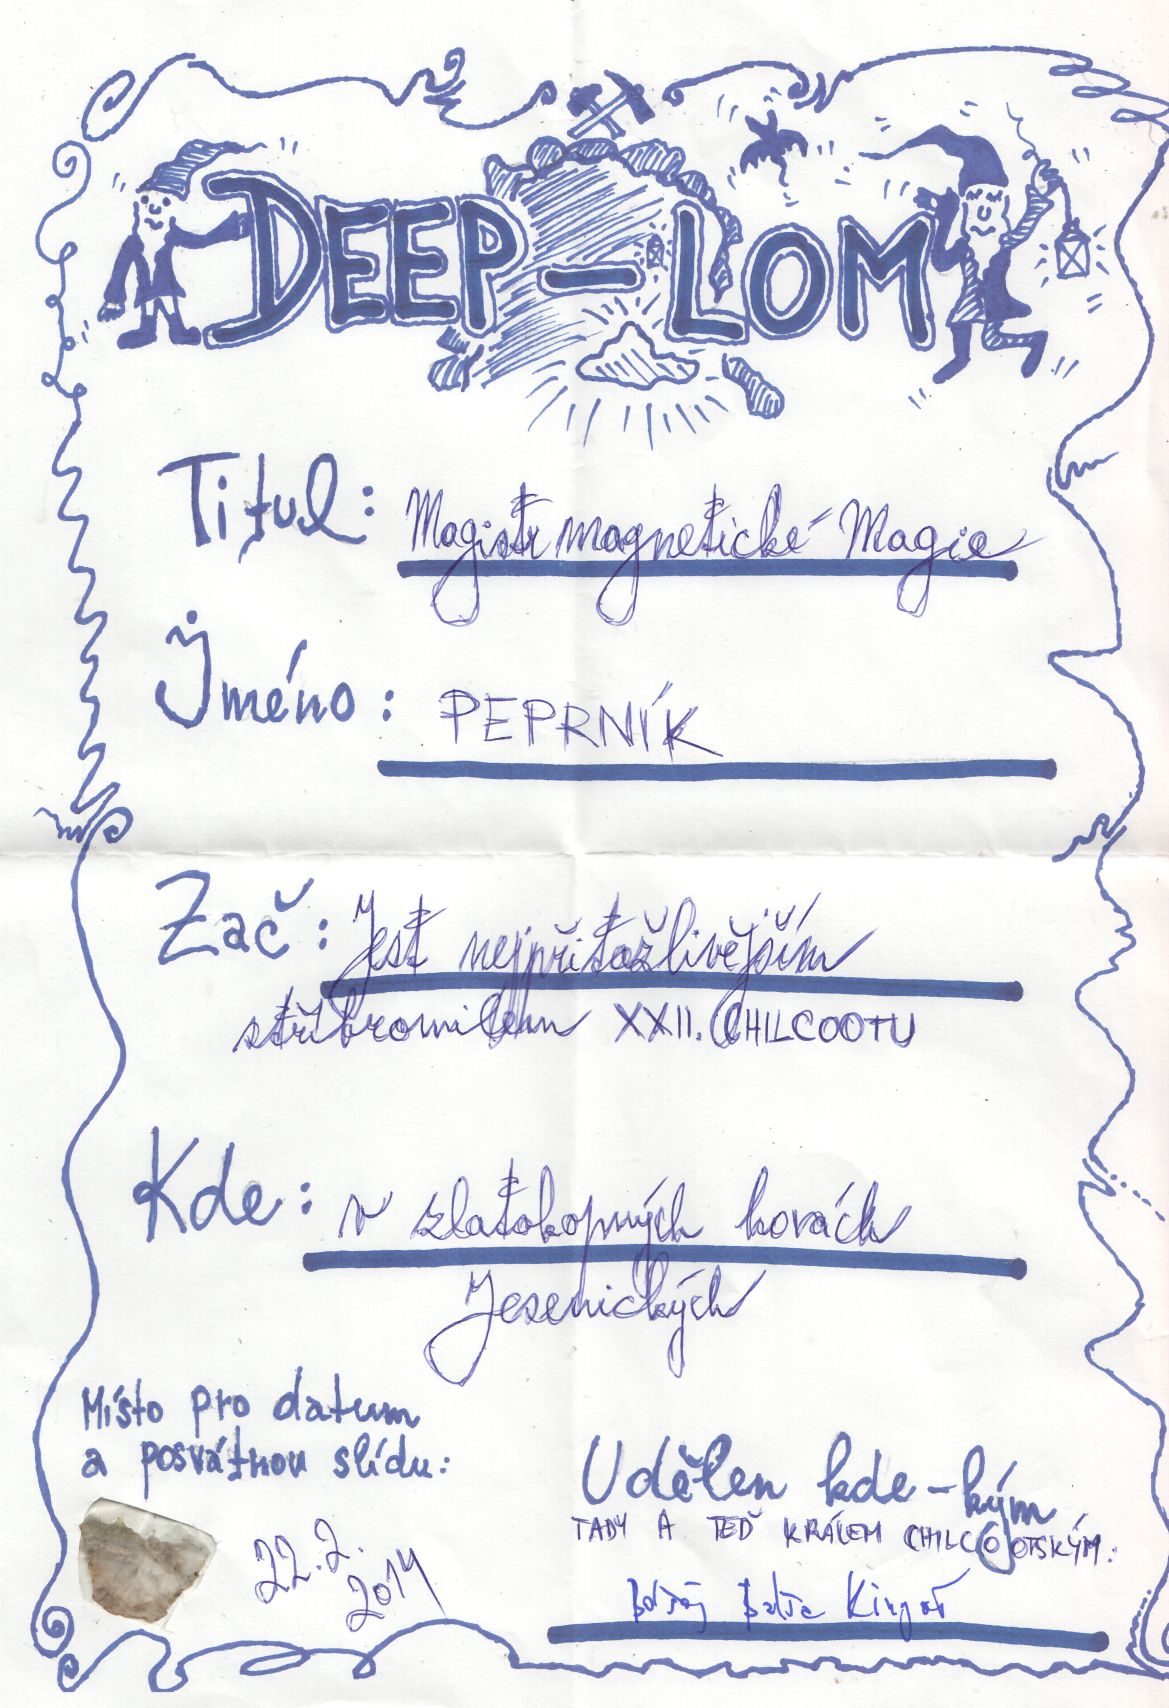 DEEP-LOM
Titul: Magistr magnetické Magie
Jméno: PEPRNÍK
Zač: Jest nejpřitažlivějším
stříbronilem XXII. CHILCOOTU
Kde: v zlatokopných horách
Jesenických
Místo pro datum
a posvátnou slídu:
22.2.
2014
Udělen kde-kým
TADY A TEĎ KRÁLEM CHILCOOTSKÝM: